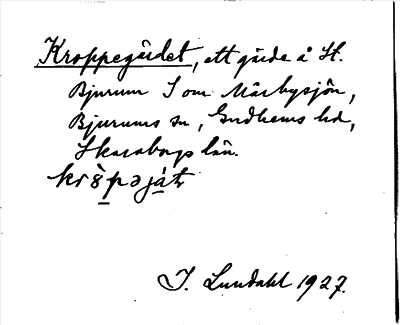 Kroppegärdet, ett gärde å St.
Bjurum S om Mårbysjön,
Bjurums sn, Gudhems hd,
Skaraborgs län.
I. Lundahl 1927.